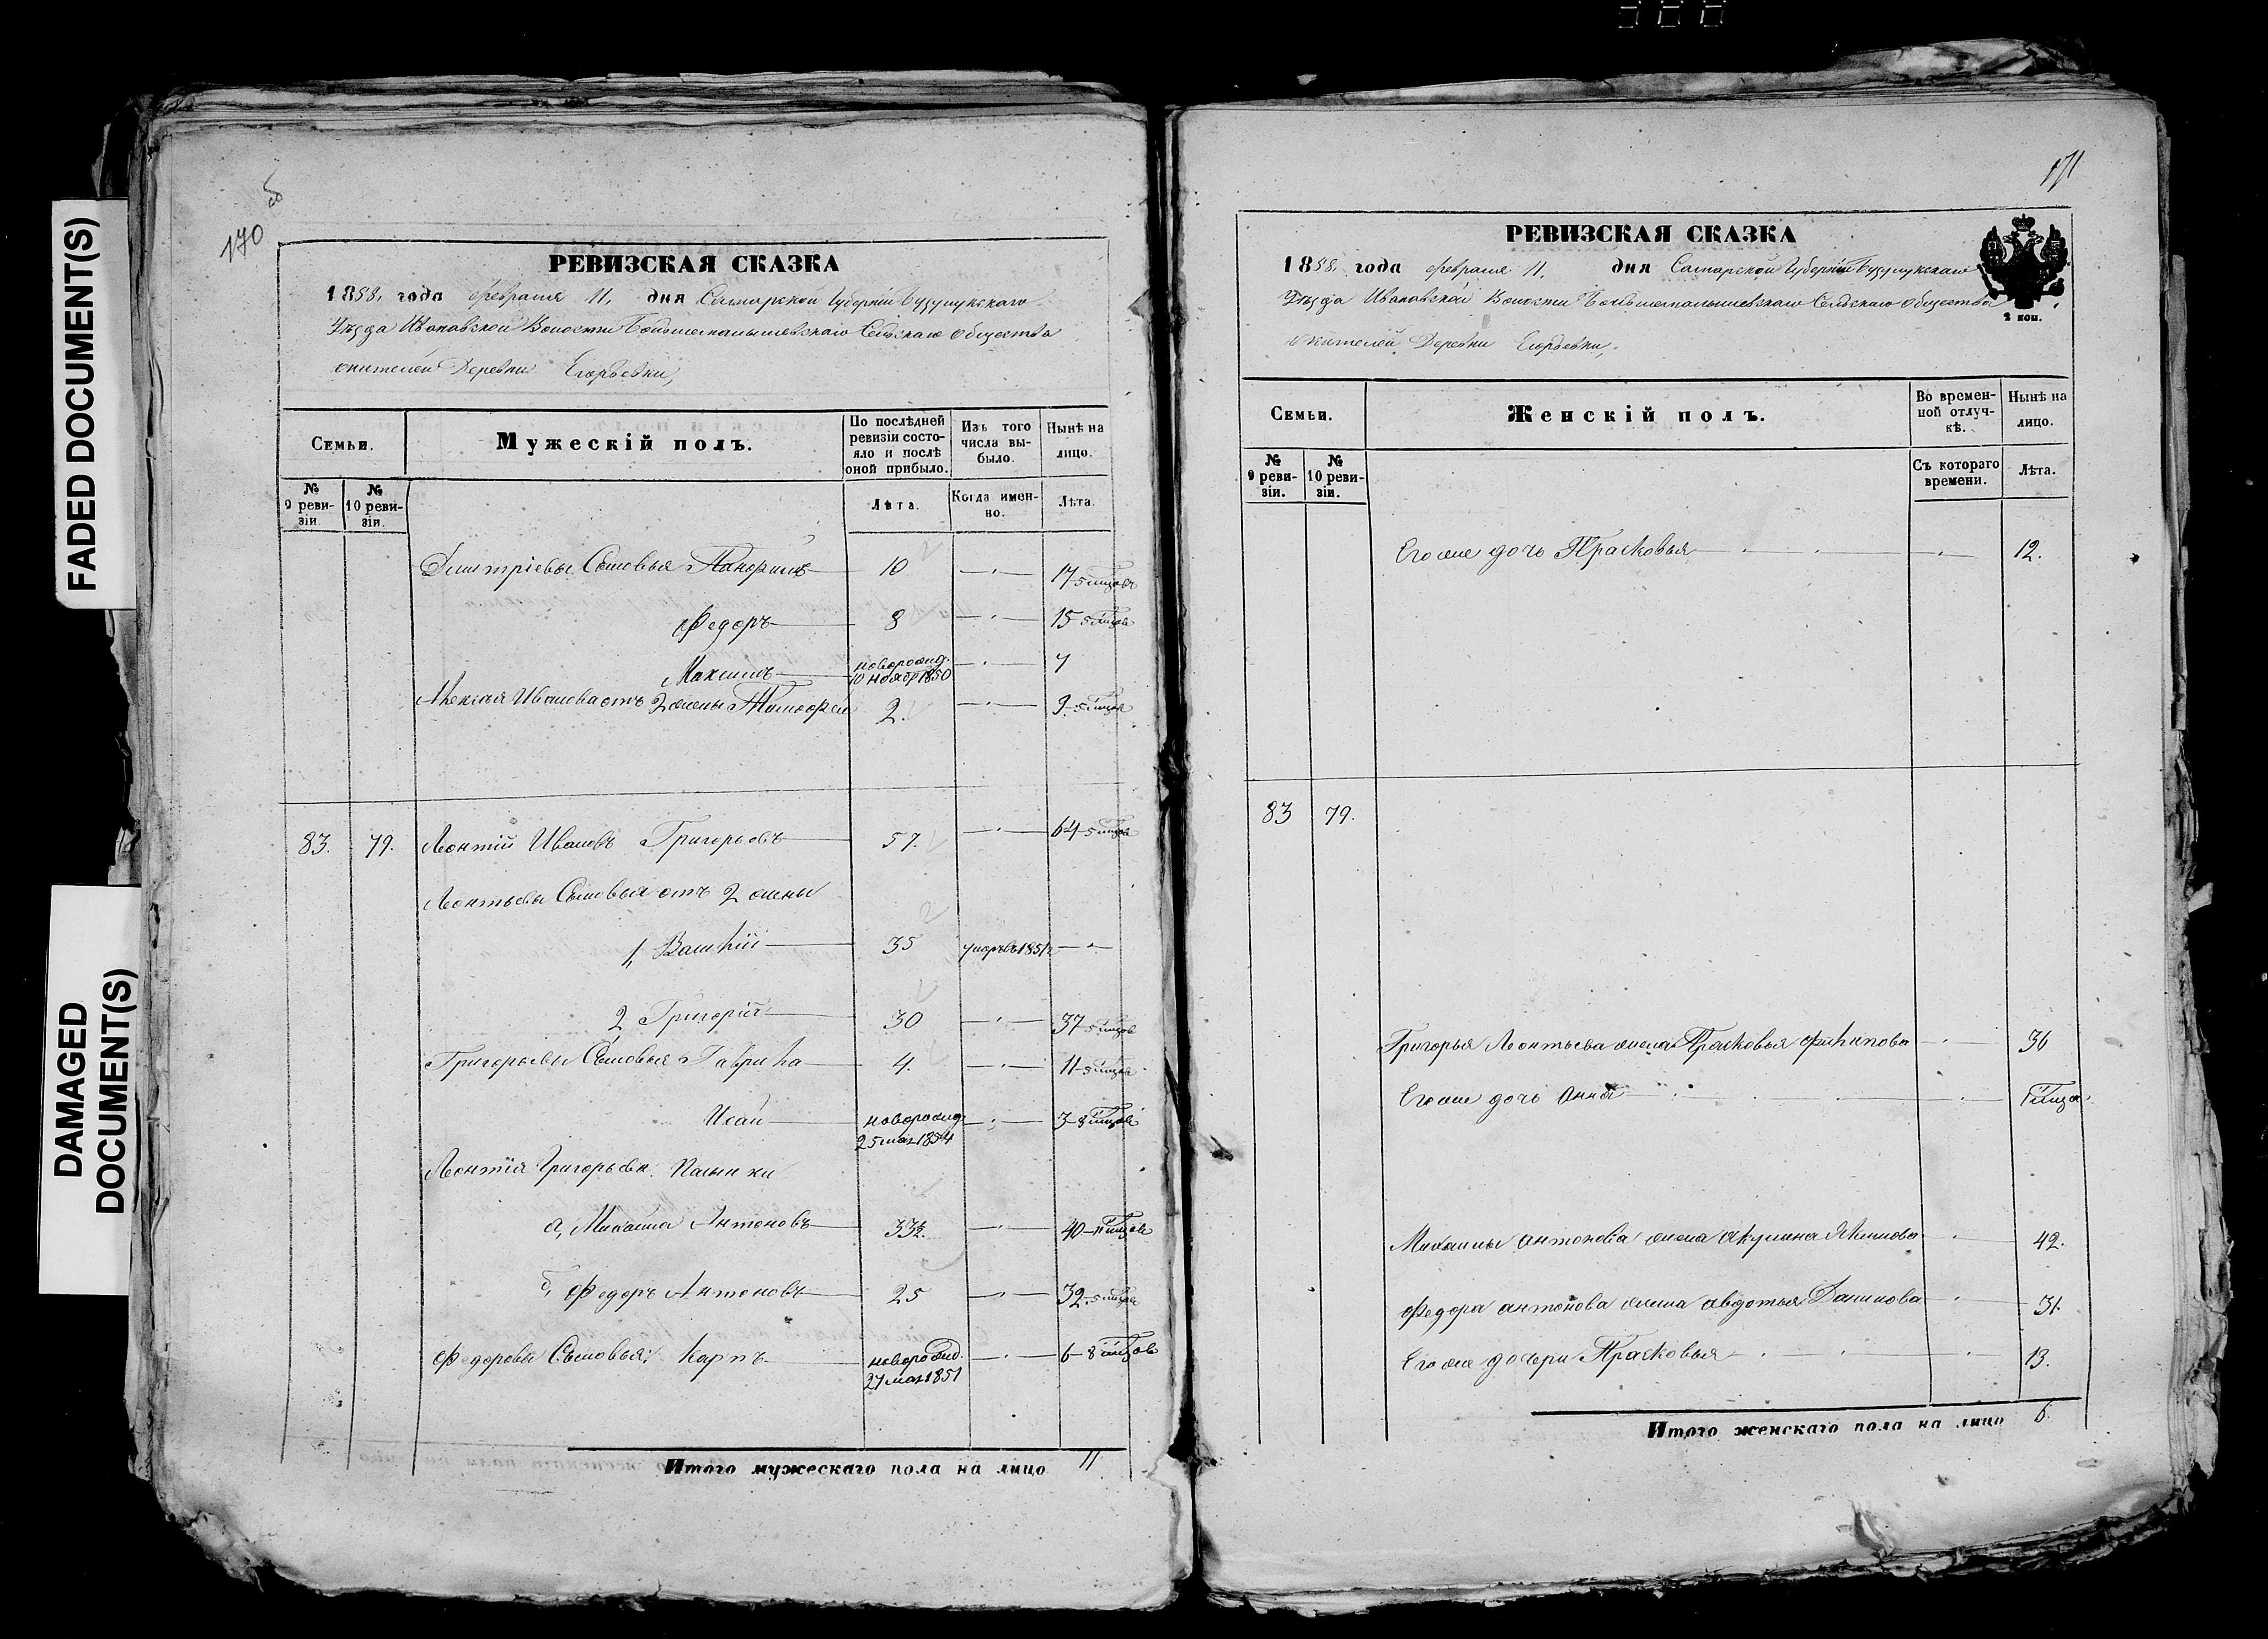 FADED DOCUMENT(S)
DAMAGED
DOCUMENT(S)
170
РЕВИЗСКАЯ СКАЗКА
1858, года февраля 11, дня Самарской Губерніи Бузулукскаго
Уѣзда Ивановской Волости Большемалышевскаго Сельскаго общества
жителей Деревни Егорьевки,
Семьи.
Мужескій полъ.
По послѣдней ревизіи состояло и послѣ оной прибыло.
Изъ того числа выбыло.
Нынѣ на лицо.
№ 9 ревизіи.
№ 10 ревизіи.
Лѣта.
Когда именно.
Лѣта.
Дмитріевы Сыновья Панфилъ 10 17
Федоръ 8 15
Максимъ новорожд. 10 ноябр 1850 7
Алексѣя Иванова отъ 2 жены Тимофей 2. 9
83. 79. Леонтій Ивановъ Григорьевъ 57. 64
Леонтьевы Сыновья отъ 2 жены
1, Василій 35 умеръ въ 1851
2 Григорій 30 37
Григорьевы Сыновья Гаврила 4. 11
Исай новорожд 25 мая 1854 3
Леонтія Григорьева Пасынки
а, Михайла Антоновъ 33½. 40
б, Федоръ Антоновъ 25 32
Федоровы Сыновья: Карпъ новорожд. 27 мая 1851 6
Итого мужескаго пола на лицо 11
171
РЕВИЗСКАЯ СКАЗКА
1858, года февраля 11, дня Самарской Губерніи Бузулукскаго
Уѣзда Ивановской Волости Большемалышевскаго Сельскаго общества
2 коп.
жителей Деревни Егорьевки,
Семьи.
Женскій полъ.
Во временной отлучкѣ.
Нынѣ на лицо.
№ 9 ревизіи.
№ 10 ревизіи.
Съ котораго времени.
Лѣта.
Его же дочь Прасковья 12.
83 79.
Григорья Леонтьева жена Прасковья Филипова 36
Его же дочь Анна
Михайлы Антонова жена Акулина Якимова 42.
Федора антонова жена авдотья Данилова 31.
Его же дочери Прасковья 13.
Итого женскаго пола на лицо 6.